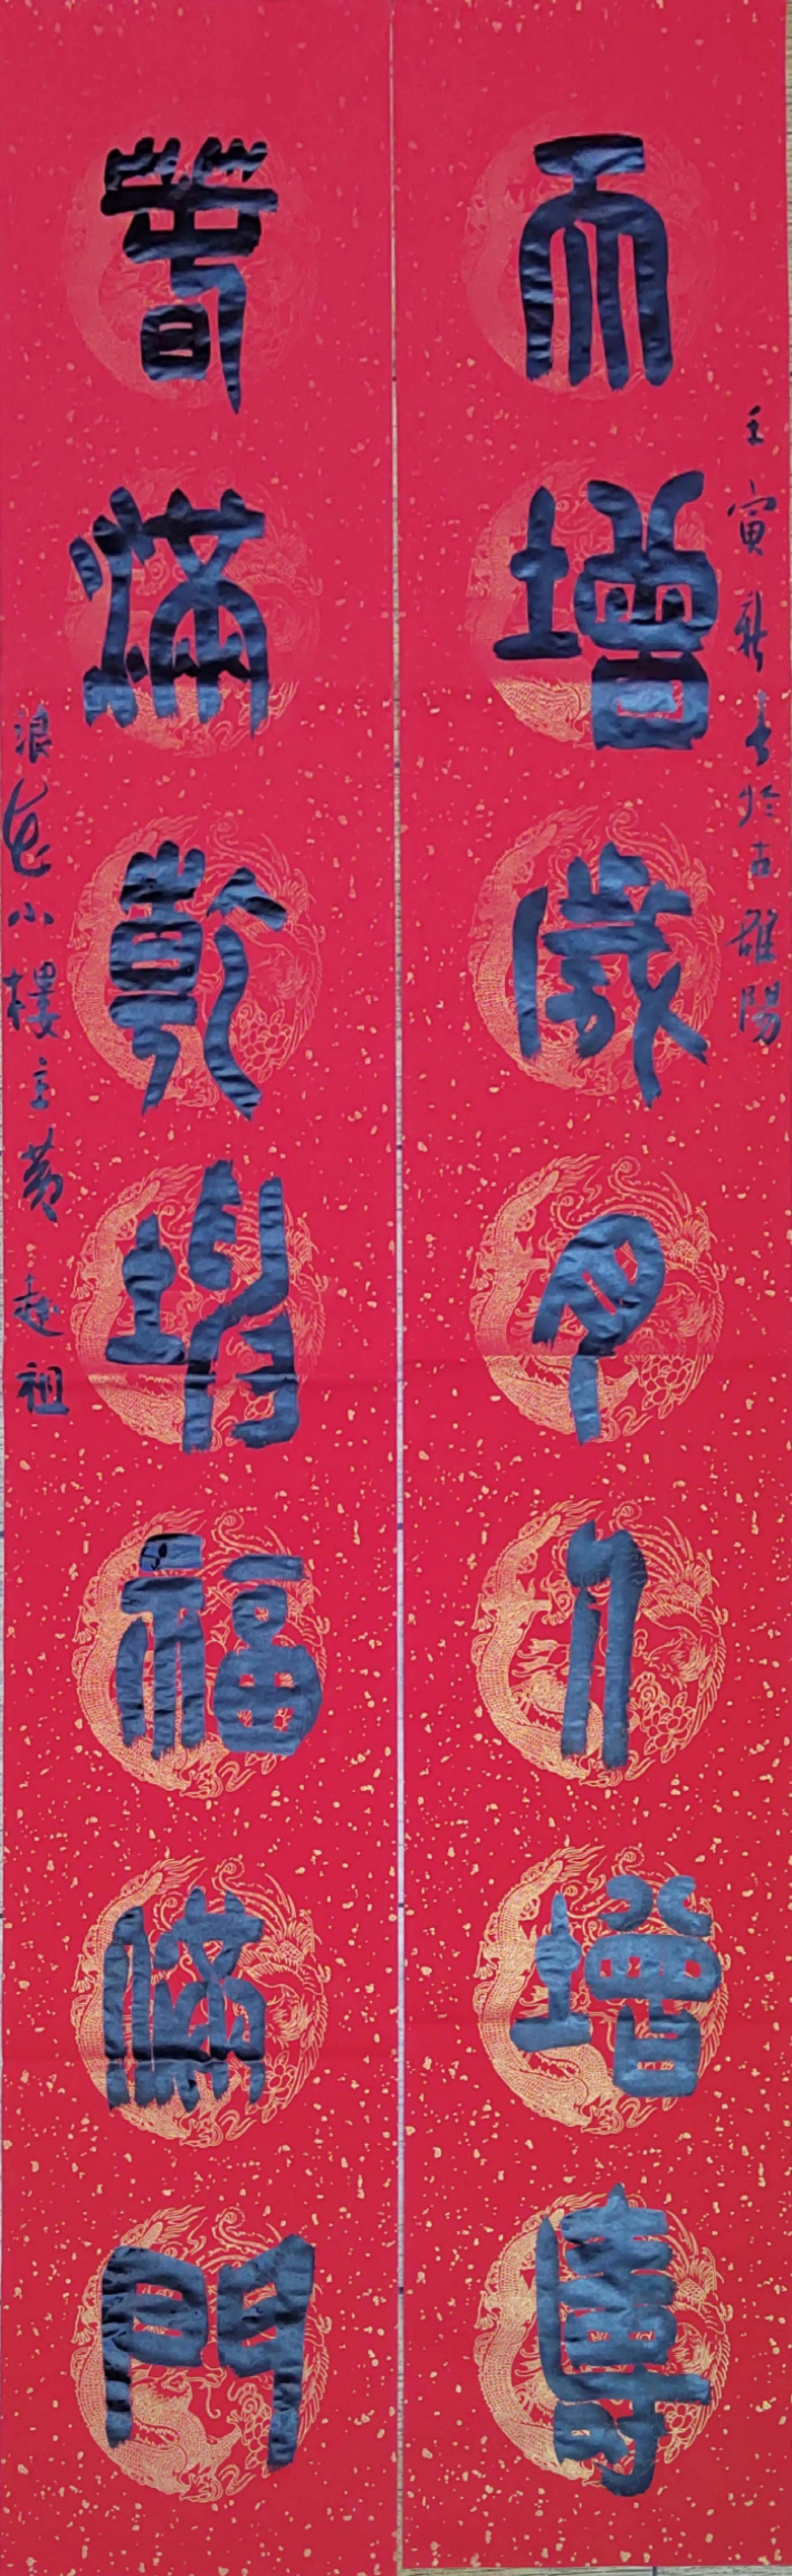 天增歲月人增壽
壬寅新春於古雒陽
春滿乾坤福滿門
小樓主黃 祖